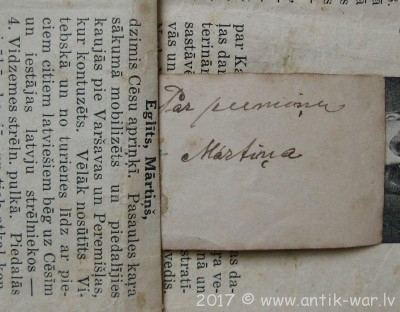 par Ka
ļas dar
terinār
sastāvē
vās un
Par peemiņu
Mārtiņa
as da-
ra ve-
anā un
strati-
vedis.
Eglīts, Mārtiņš,
dzimis Cēsu apriņķī. Pasaules kaŗa
sākumā mobilizēts un piedalījies
kaujās pie Varšavas un Peremišļas,
kur kontuzēts. Vēlāk nosūtīts Vi-
tebskā un no turienes līdz ar pie-
ciem citiem latviešiem bēg uz Cēsīm
un iestājas latvju strēlniekos —
4. Vidzemes strēln. pulkā. Piedalās
2017 © www.antik-war.lv